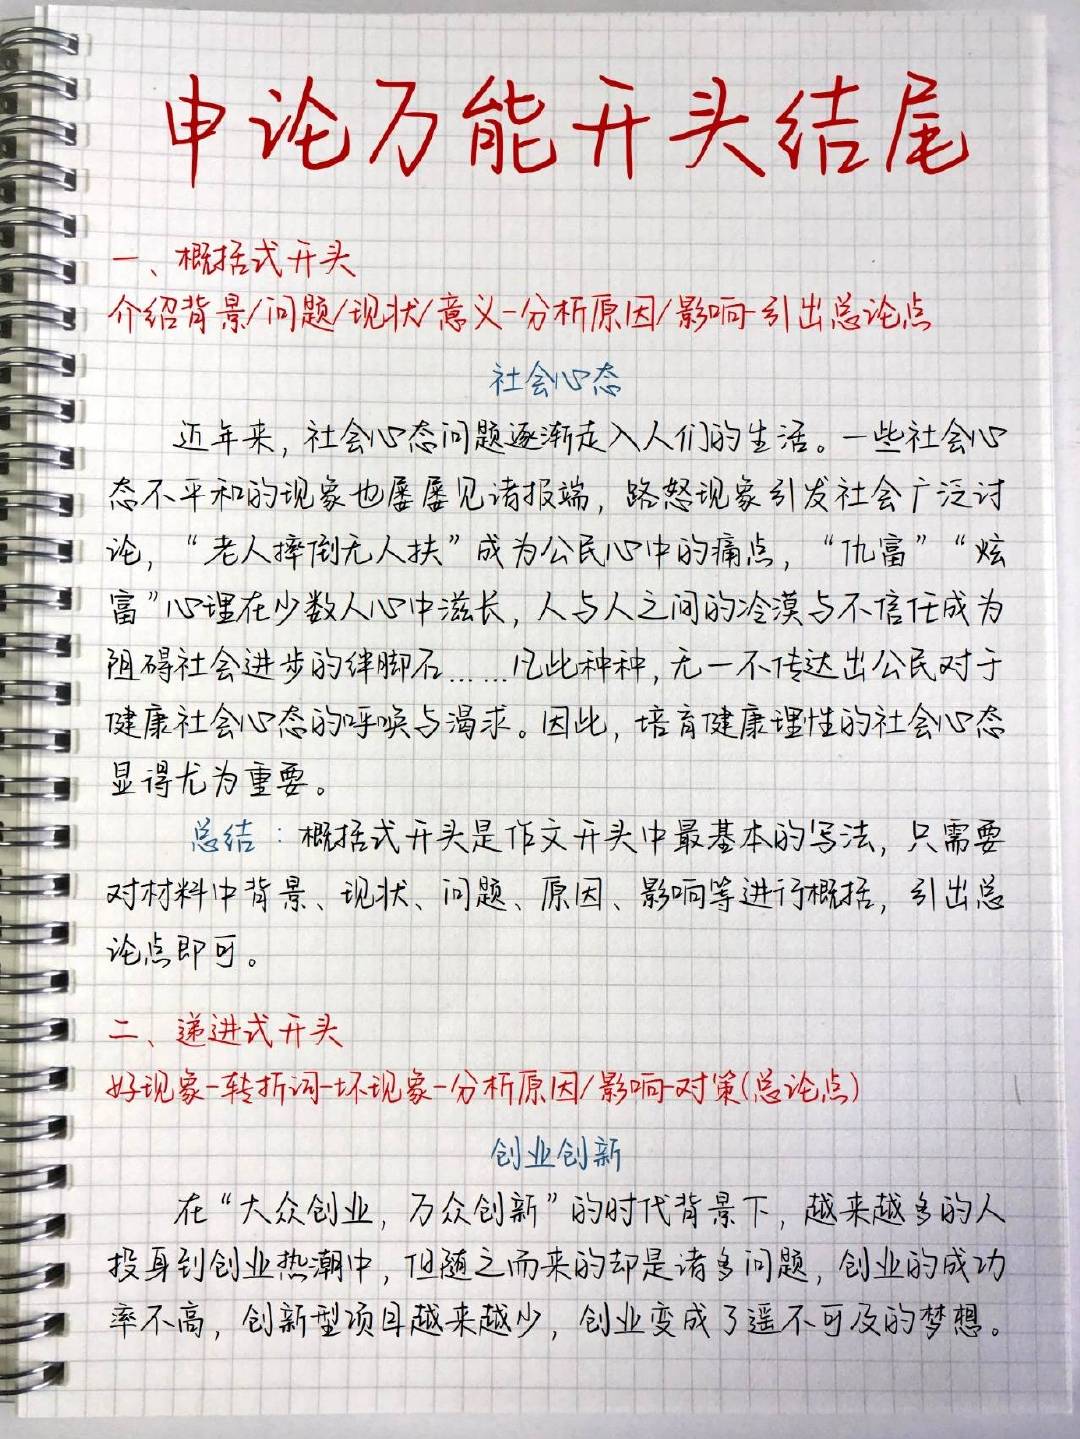 申论万能开头结尾
一、概括式开头
介绍背景/问题/现状/意义-分析原因/影响-引出总论点
社会心态
近年来，社会心态问题逐渐走入人们的生活。一些社会心
态不平和的现象也屡屡见诸报端，路怒现象引发社会广泛讨
论，“老人摔倒无人扶”成为公民心中的痛点，“仇富”“炫
富”心理在少数人心中滋长，人与人之间的冷漠与不信任成为
阻碍社会进步的绊脚石……凡此种种，无一不传达出公民对于
健康社会心态的呼唤与渴求。因此，培育健康理性的社会心态
显得尤为重要。
总结：概括式开头是作文开头中最基本的写法，只需要
对材料中背景、现状、问题、原因、影响等进行概括，引出总
论点即可。
二、递进式开头
好现象-转折词-坏现象-分析原因/影响-对策(总论点)
创业创新
在“大众创业，万众创新”的时代背景下，越来越多的人
投身到创业热潮中，但随之而来的却是诸多问题，创业的成功
率不高，创新型项目越来越少，创业变成了遥不可及的梦想。